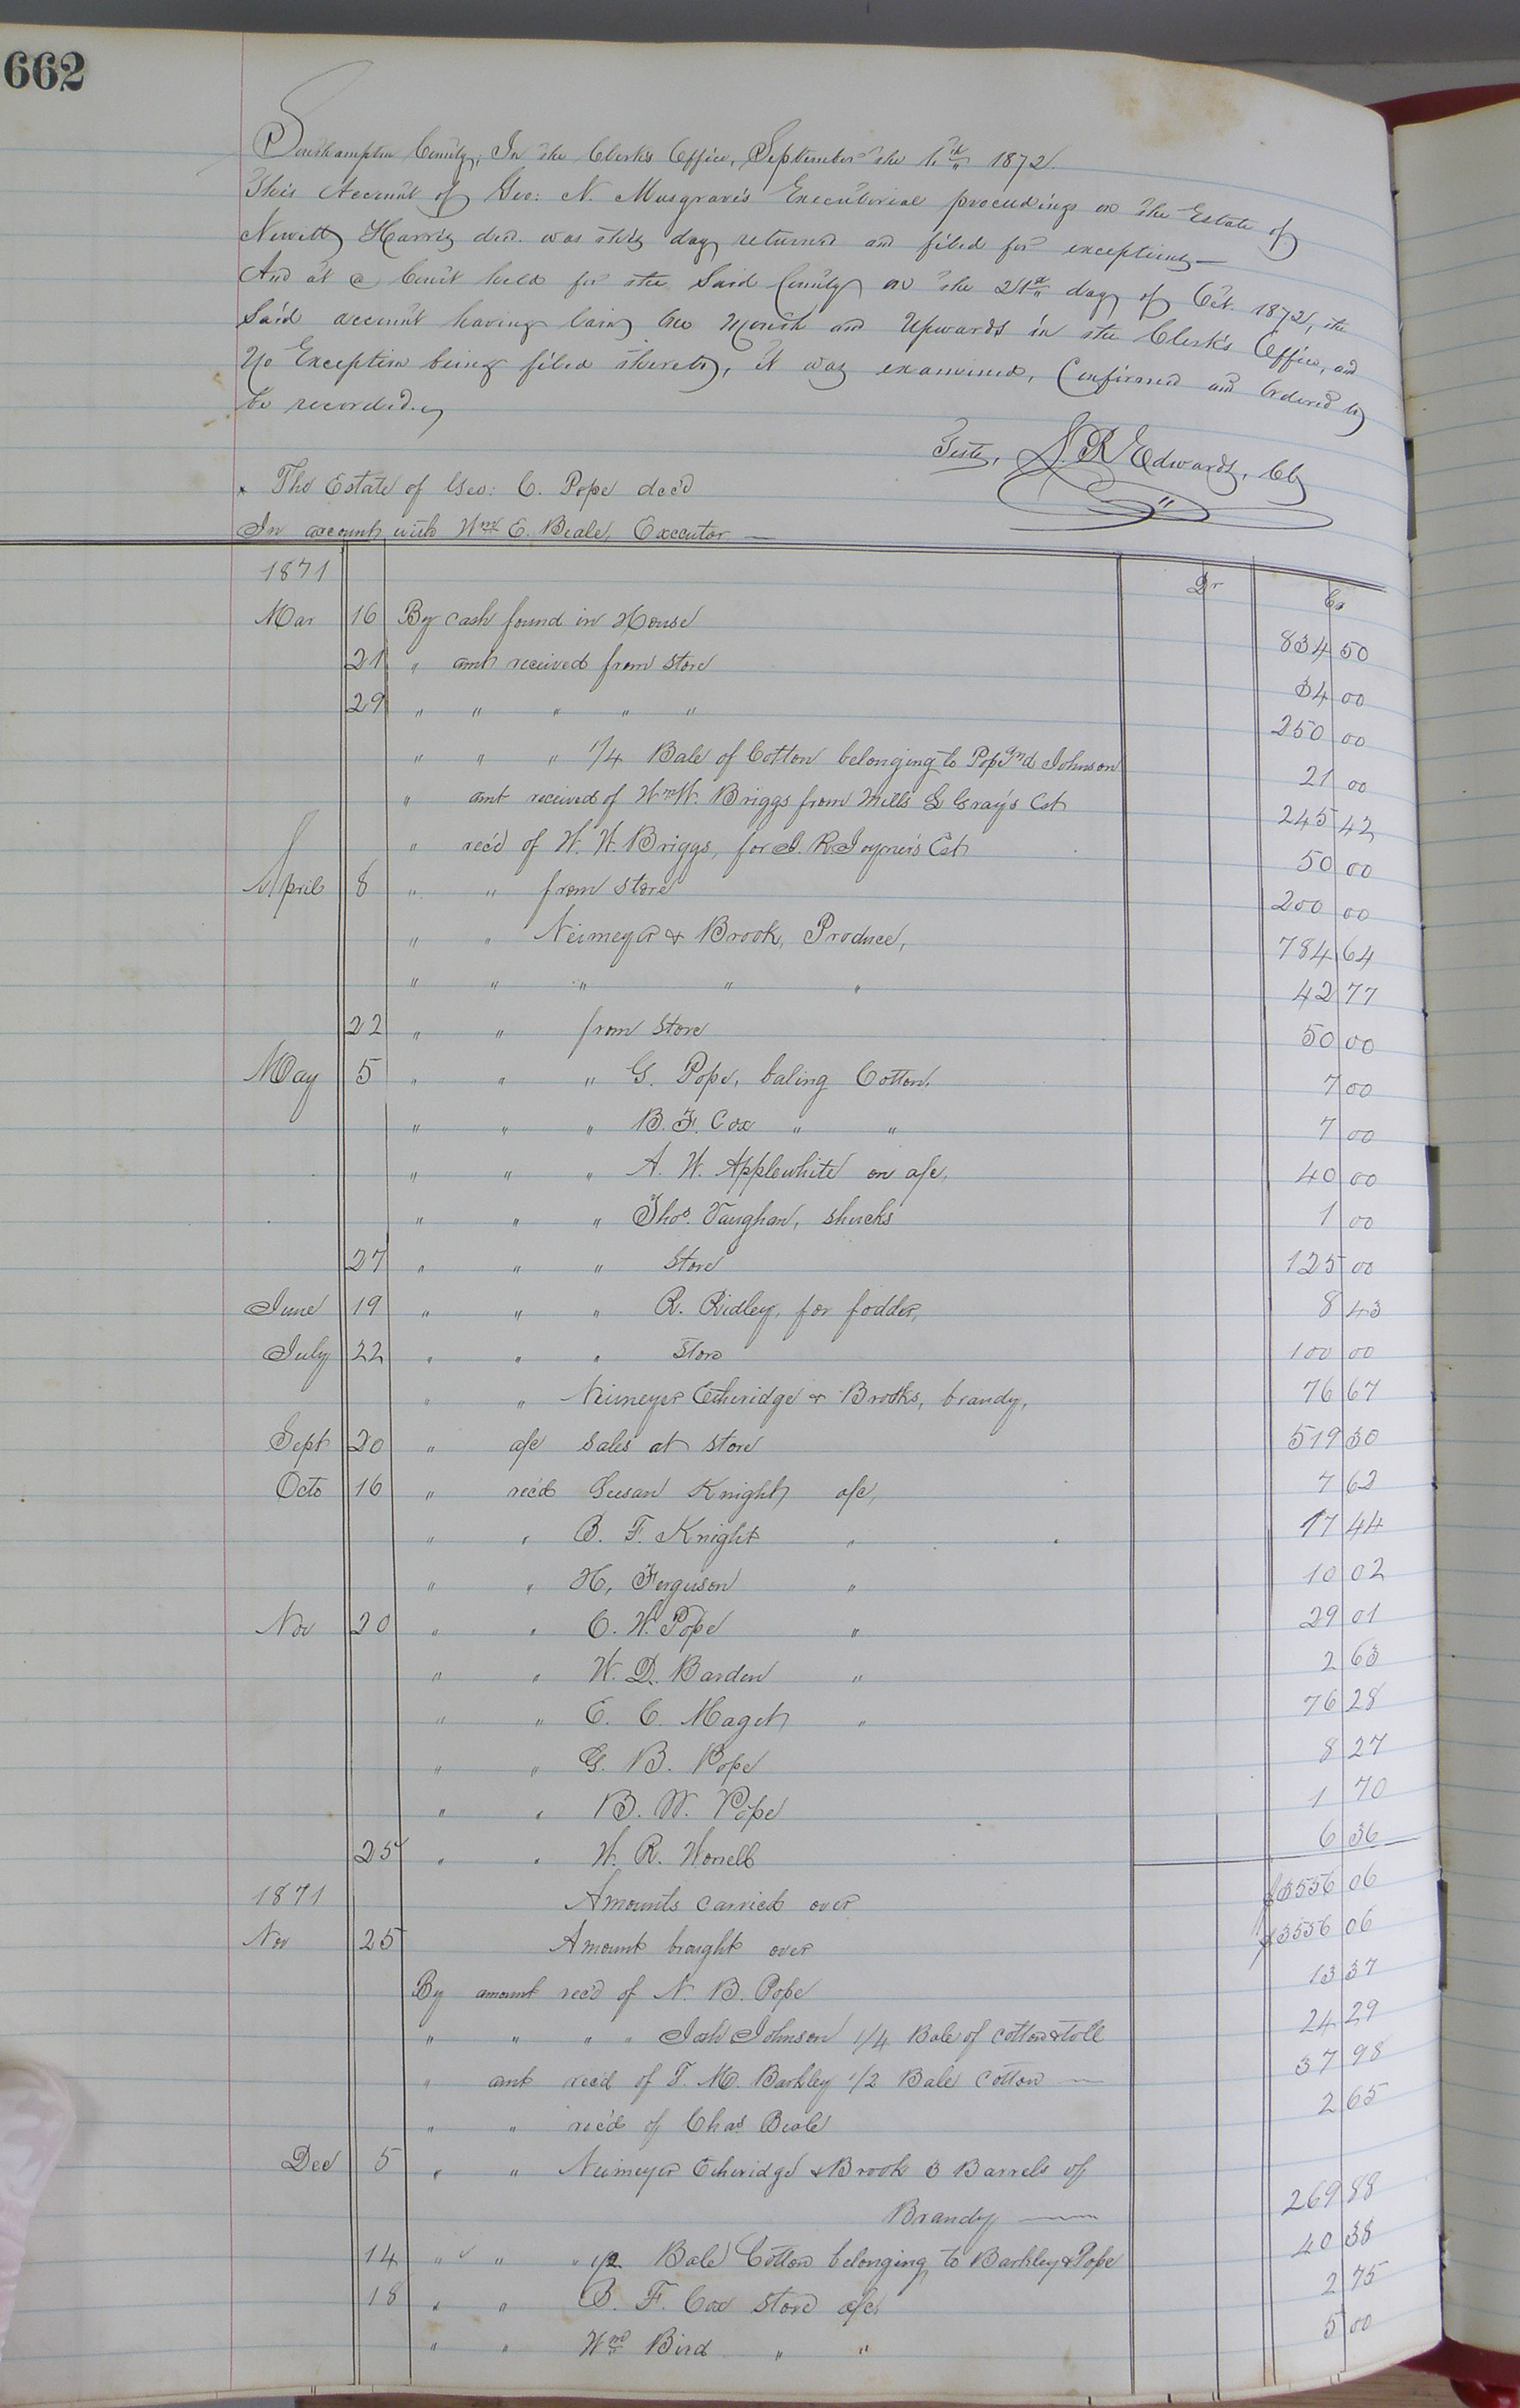 662
Southampton County; In the Clerk's Office, September the 1st 1872.
This Account of Geo: N. Musgrave's Executorial proceedings on the Estate of
Newitt Harris decd. was this day returned and filed for exceptions—
And at a Court held for the Said County on the 21st day of Oct. 1872, the
Said account having lain one Month and Upwards in the Clerk's Office, and
No Exception being filed thereto, it was examined, Confirmed and Ordered to
be recorded.
Teste, L. R Edwards, Clk
The Estate of Geo: C. Pope dec'd
In account with Wm E. Beale, Executor —
1871 Dr Cr
Mar 16 By cash found in House 834 50
21 " amt received from store 34 00
29 " " " " " 250 00
" " " 1/4 Bale of Cotton belonging to Pope and Johnson 21 00
" amt received of Wm W. Briggs from Mills G Gray's Est 245 42
" rec'd of W. W. Briggs, for J. R. Joyner's Est 50 00
April 8 " " from store 200 00
" " Neimeyer & Brook, Produce, 784 64
" " " " " 42 77
22 " " from store 50 00
May 5 " " " G. Pope, baling Cotton, 7 00
" " " B. F. Cox " " 7 00
" " " A. W. Applewhite on a/c, 40 00
" " " Thos. Vaughan, shucks 1 00
27 " " " store 125 00
June 19 " " " R. Ridley, for fodder, 8 43
July 22 " " " store 100 00
" " Neimeyer Etheridge & Brooks, brandy, 76 67
Sept 20 " a/c sales at store 519 30
Octo 16 " rec'd Susan Knight a/c, 7 62
" " B. F. Knight " 17 44
" " H, Ferguson " 10 02
Nov 20 " " C. W. Pope " 29 01
" " W. D. Barden " 2 63
" " E. C. Maget " 76 28
" " G. B. Pope 8 27
" " B. W. Pope 1 70
25 " " W. R. Worrell 6 36
1871 Amounts carried over $3556 06
Nov 25 Amount brought over $3556 06
By amount rec'd of N. B. Pope 13 37
" " " " Josh Johnson 1/4 Bale of cotton & toll 24 29
" amt rec'd of T. M. Barkley 1/2 Bale Cotton — 37 98
" " rec'd of Chas Beale 2 65
Dec 5 " " Neimeyer Etheridge & Brook 3 Barrels of
Brandy — 269 88
14 " " " " 1/2 Bale Cotton belonging to Barkley & Pope 40 38
18 " " B. F. Cox store a/c, 2 75
" " Wm Bird " " 5 00